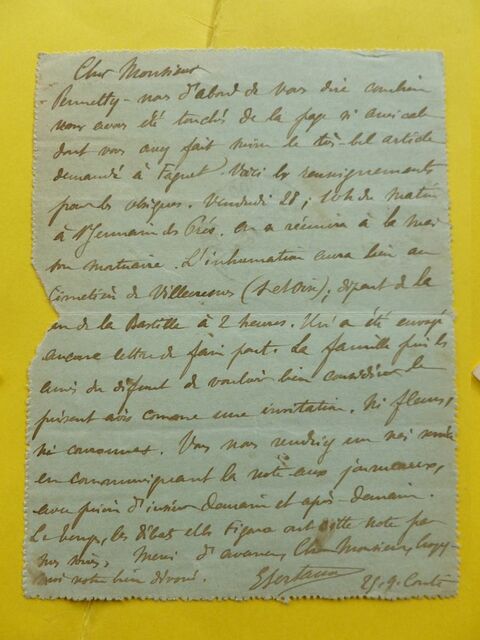 Cher Monsieur
Permettez-nous d'abord de vous dire combien
nous avons été touchés de la page si amicale
dont vous avez fait suivre le très bel article
demandé à Faguet. Voici les renseignements
pour les obsèques. Vendredi 28; 10h du matin
à St Germain des Prés. On se réunira à la mai
son mortuaire. L'inhumation aura lieu au
Cimetière de Villecresnes (S et Oise); départ de la
gare de la Bastille à 2 heures. Il n'a été envoyé
aucune lettre de faire part. La famille prie les
amis du défunt de vouloir bien considérer le
présent avis comme une invitation. Ni fleurs,
ni couronnes. Vous nous rendriez un vrai service
en communiquant la note aux journaux,
avec prière d'insérer demain et après-demain.
Le Temps, les Débats et le Figaro ont cette note par
nos soins. Merci d'avance, Cher Monsieur, croyez-
moi votre bien dévoué.
25.9.